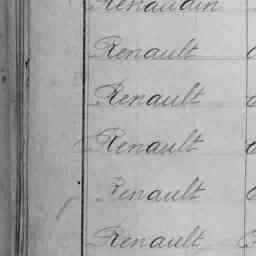 Renaudin
Renault
Renault
Renault
Renault
Renault